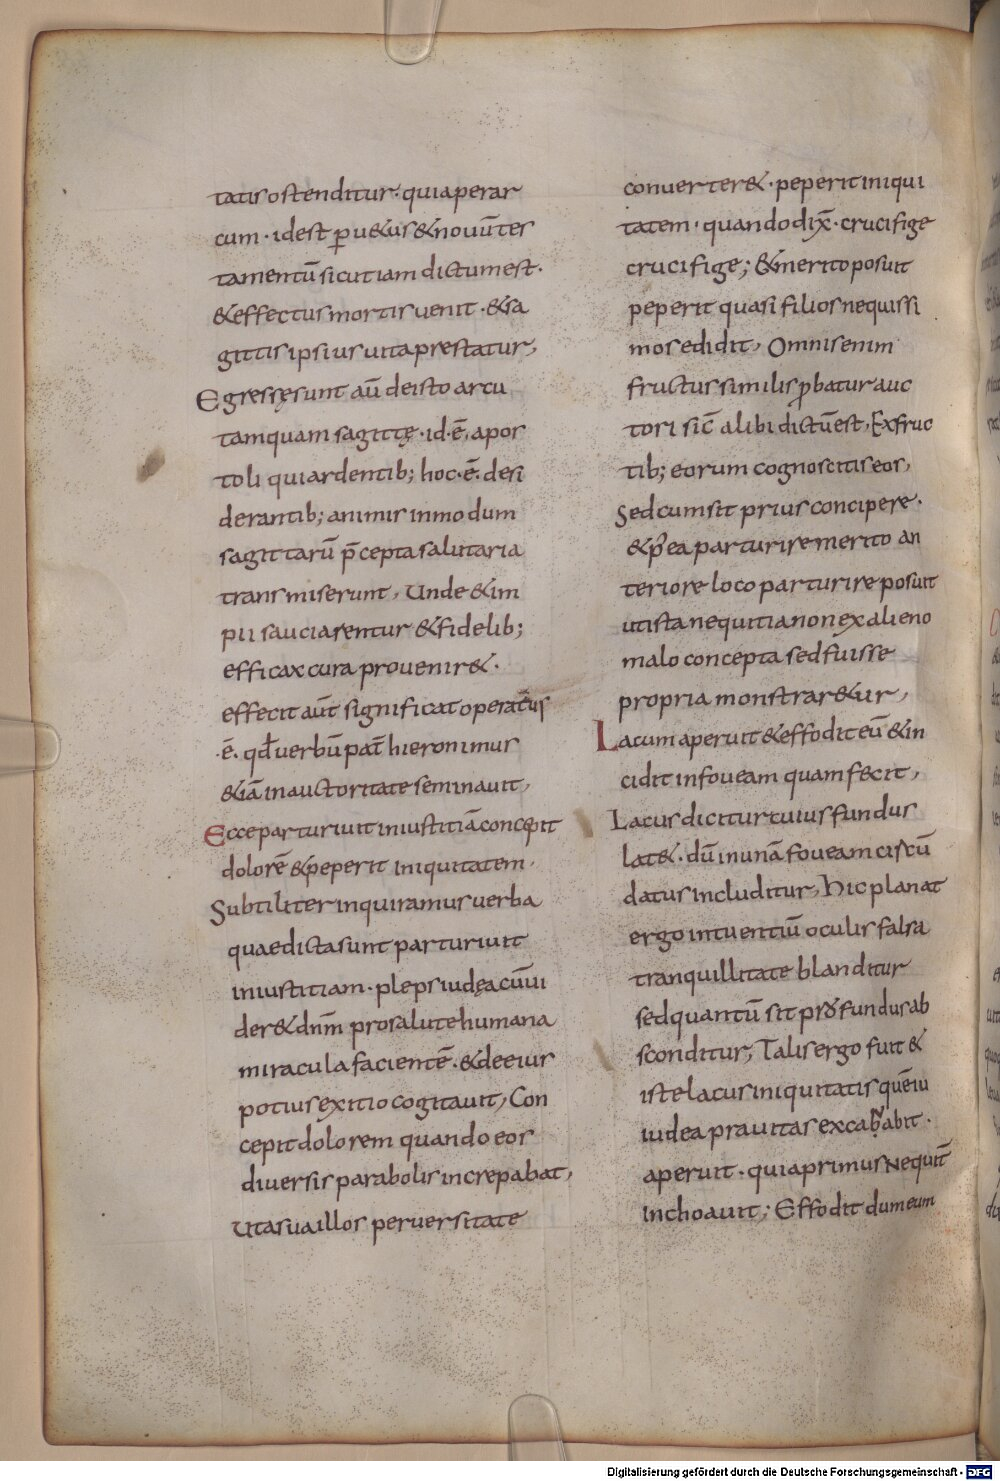 tatis ostenditur · quia per ar
cum · id est p̱ u&us & novū tes
tamentū sicut iam dictum est ·
& effectus mortis venit · & sa
gittis ipsius vita prestatur,
Egressę sunt aū de isto arcu
tamquam sagittę · id · ē, apos
toli qui ardentib; hoc · ē · desi
derantib; animis in modum
sagittarū p̄cepta salutaria
transmiserunt, Unde & im
pii sauciarentur & fidelib;
efficax cura provenir& ·
effecit aūt significat operaturus
· ē · qđ verbū pat̄ hieronimus
&iā in auctoritate seminavit,
Ecce parturivit iniustitiā concepit
dolorē & peperit iniquitatem ·
Subtiliter inquiramus verba
quae dicta sunt parturivit
iniustitiam · pleps iudęa cū vi
der& dnm̄ pro salute humana
miracula facientē · & de eius
potius exitio cogitavit, Con
cepit dolorem quando eos
diversis parabolis increpabat,
Uta sua illos perversitate
converter& · peperit iniqui
tatem · quando dix̄ · crucifige
crucifige; & merito posuit
peperit quasi filios nequissi
mos edidit, Omnis enim
fructus similis ꝓbatur auc
tori sic̄ alibi dictū est, Ex fruc
tib; eorum cognoscitis eos,
Sed cum sit prius concipere ·
& p̄ ea parturire merito an
teriore loco parturire posuit
ut ista nequitia non ex alieno
malo concepta sed fuisse
propria monstrar&ur,
Lacum aperuit & effodit eū & in
cidit in foveam quam fecit,
Lacus dicitur cuius fundus
lat& · dū in unā foveam circū
datus includitur, Hic planat
ergo intuentiū oculis falsa
tranquillitate blanditur
sed quantū sit profundus ab
sconditur, Talis ergo fuit &
iste lacus iniquitatis quē iu
iudea pravitas excababit ·
aperuit · quia primus nequit̄
inchoavit; Effodit dum eum
Digitalisierung gefördert durch die Deutsche Forschungsgemeinschaft - DFG